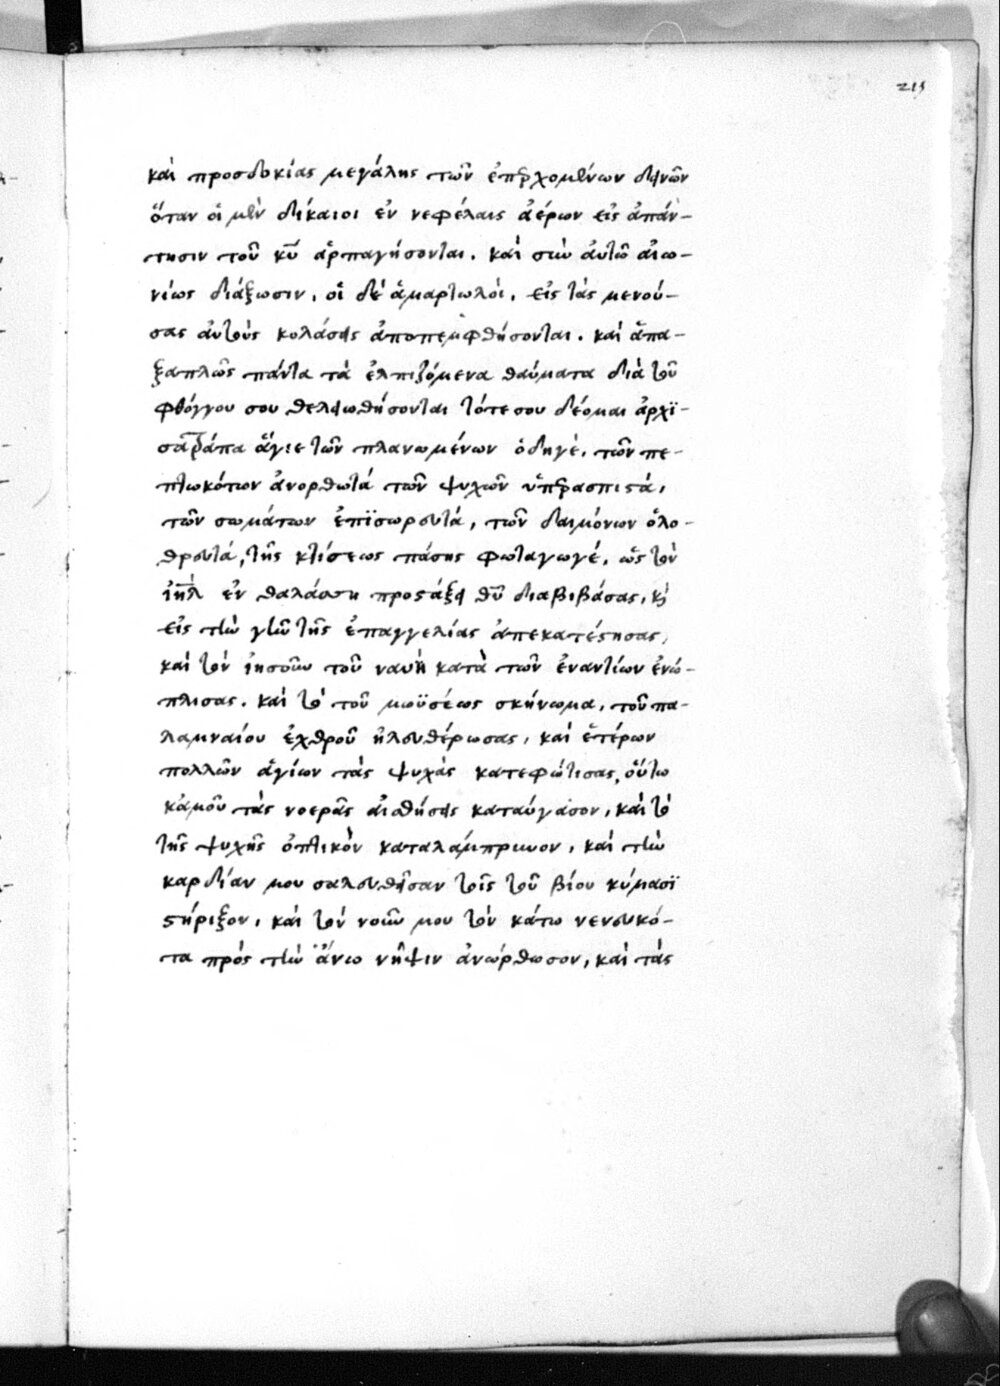 215
καὶ προσδοκίας μεγάλης τῶν ἐπερχομένων δεινῶν
ὅταν οἱ μὲν δίκαιοι ἐν νεφέλαις ἀέρων εἰς ἀπάν-
τησιν τοῦ κῦ ἁρπαγήσονται. καὶ σὺν ἀυτῶ αἰω-
νίως διάξωσιν, οἱ δὲ ἁμαρτωλοὶ, εἰς τὰς μενού-
σας ἀυτοὺς κολάσεις ἀποπεμφθήσονται. καὶ ἅπα-
ξαπλῶς πάντα τὰ ἐλπιζόμενα θαύματα διὰ τοῦ
φθόγγου σου τελειωθήσονται τότε σου δέομαι ἀρχϊ-
σατράπα ἅγιε τῶν πλανωμένων ὁδηγὲ, τῶν πε-
πτωκότων ἀνορθωτά τῶν ψυχῶν ὑπερασπιστά,
τῶν σωμάτων ἐπϊσωρευτά, τῶν δαιμόνων ὀλο-
θρευτά, τῆς κτίσεως πάσης φωταγωγέ, ὡς τὸν
ἰηλ ἐν θαλάσση προστάξει θῦ διαβιβάσας, κὶ
εἰς τὴν γῆν τῆς ἐπαγγελίας ἀπεκατέστησας,
καὶ τὸν ἰησοῦν τοῦ ναυῆ κατὰ τῶν ἐναντίων ἐνώ-
πλισας. καὶ τὸ τοῦ μωϋσέως σκήνωμα, τοῦ πα-
λαμναίου ἐχθροῦ ἠλευθέρωσας, καὶ ἑτέρων
πολλῶν ἁγίων τὰς ψυχὰς κατεφώτισας, οὕτω
κἀμοῦ τὰς νοερᾶς αἰσθήσεις καταύγασον, καὶ τὸ
τῆς ψυχῆς ὀπτικὸν καταλάμπρυνον, καὶ τὴν
καρδίαν μου σαλευθῆσαν τοῖς τοῦ βίου κύμασϊ
στήριξον, καὶ τὸν νοῦν μου τὸν κάτω νενευκό-
τα πρὸς τὴν ἄνω νῆψιν ἀνώρθωσον, καὶ τὰς